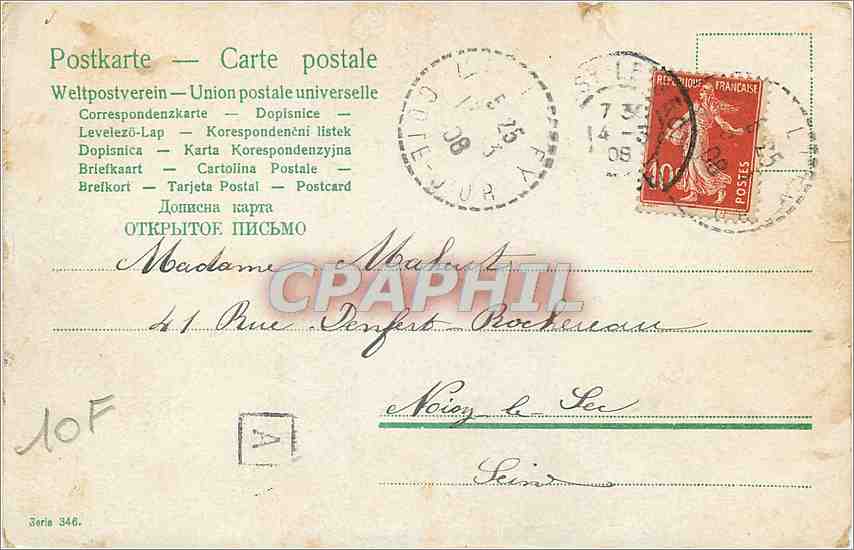 Postkarte — Carte postale
Weltpostverein — Union postale universelle
Correspondenzkarte — Dopisnice —
Levelező-Lap — Korespondenční listek
Dopisnica — Karta Korespondenzyjna
Briefkaart — Cartolina Postale —
Brefkort — Tarjeta Postal — Postcard
Дописна карта
ОТКРЫТОЕ ПИСЬМО
CÔTE-D'OR
5-25
3
08
7 30
4-3
08
REPUBLIQUE FRANÇAISE
10
POSTES
5-25
08
Madame Maheut
CPAPHIL
41 Rue Denfert-Rochereau
Noisy-le-Sec
Seine
10F
A
Serie 346.